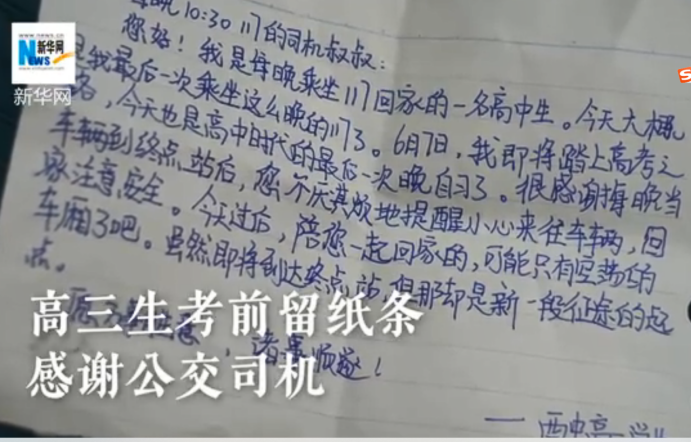 新华网
News
www.xinhuanet.com
新华网
晚10:30 117的司机叔叔：
您好！我是每晚乘坐117回家的一名高中生。今天大概
是我最后一次乘坐这么晚的117了。6月7日，我即将踏上高考之
路，今天也是高中时代的最后一次晚自习了。很感谢每晚当
车辆到终点站后，您不厌其烦地提醒小心来往车辆，回
家注意安全。今天过后，陪您一起回家的，可能只有空荡的
车厢了吧。虽然即将到达终点站，但那却是新一段征途的起
点。
诸事顺遂！
高三生考前留纸条
感谢公交司机